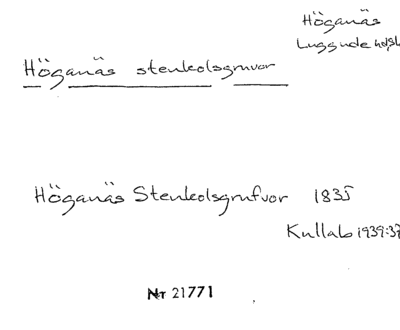 Höganäs
Luggude
Höganäs stenkolsgruvor
Höganäs Stenkolsgrufvor 1835
Kullab 1939:37
Nr 21771